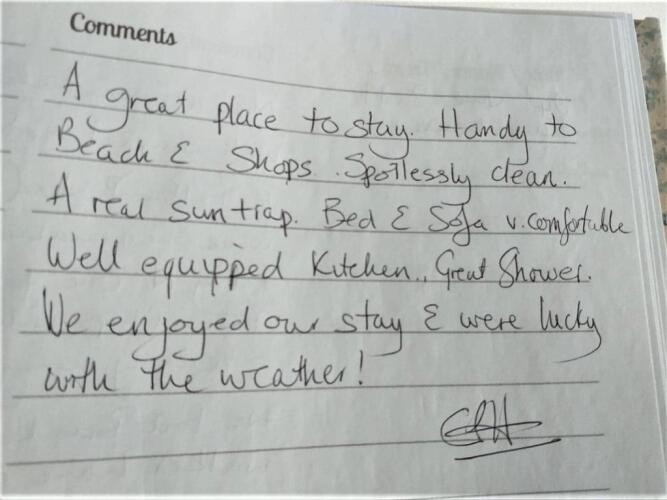 Comments
A great place to stay. Handy to
Beach & Shops. Spotlessly clean.
A real sun trap. Bed & Sofa v. comfortable
Well equipped Kitchen., Great Shower.
We enjoyed our stay & were lucky
with the weather!